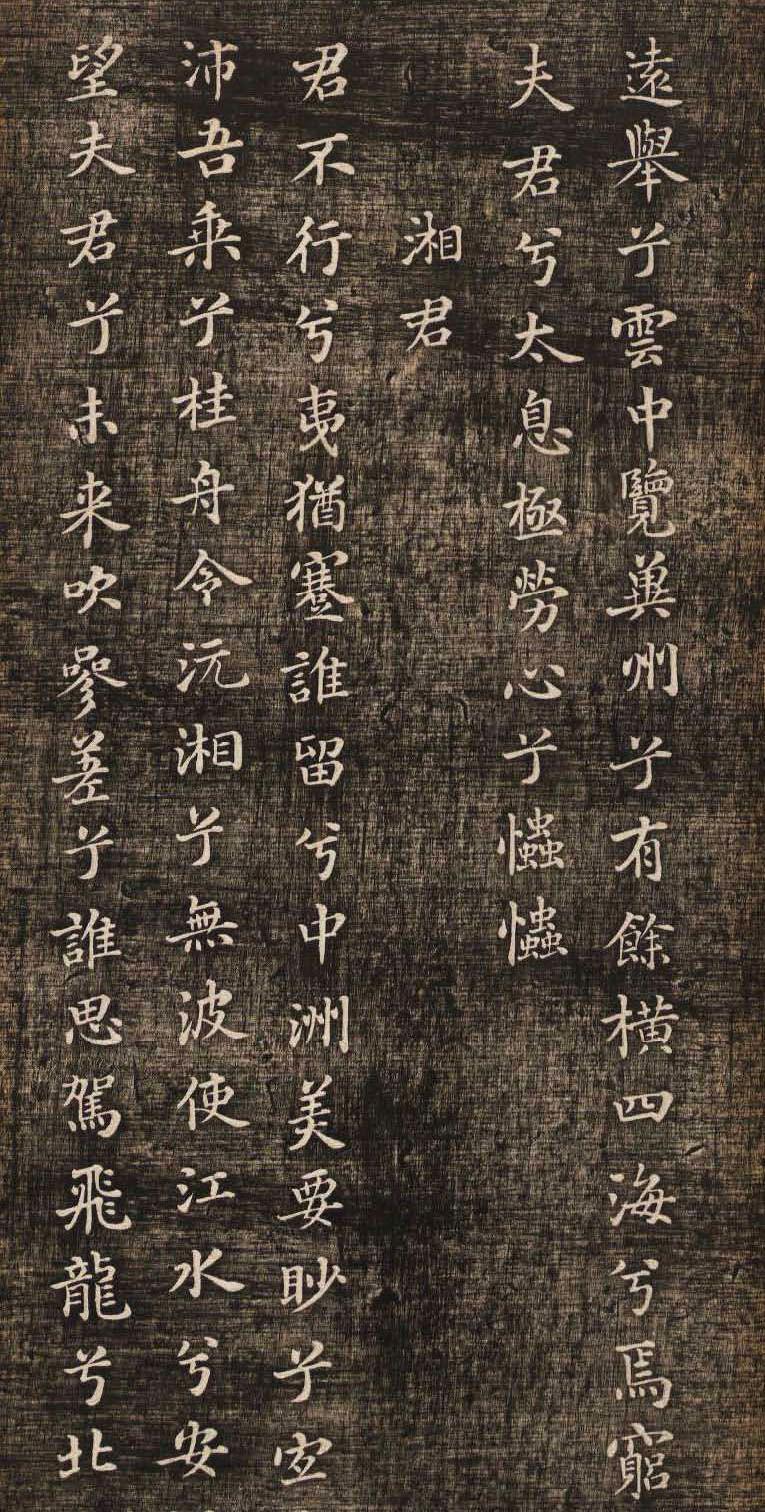 遠舉兮雲中覽兾州兮有餘橫四海兮焉窮思
夫君兮太息極勞心兮㦕㦕
湘君
君不行兮夷猶蹇誰留兮中洲美要眇兮宜
沛吾乘兮桂舟令沅湘兮無波使江水兮安
望夫君兮未来吹參差兮誰思駕飛龍兮北